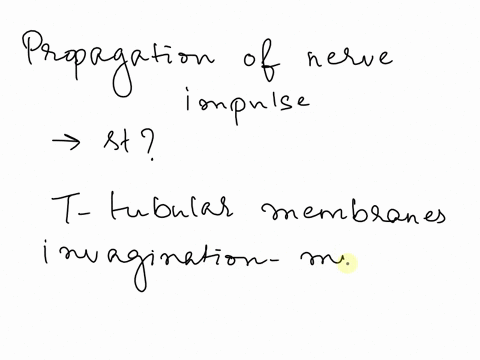 Propagation of nerve
impulse
→ st?
T- tubular membranes
invagination- m